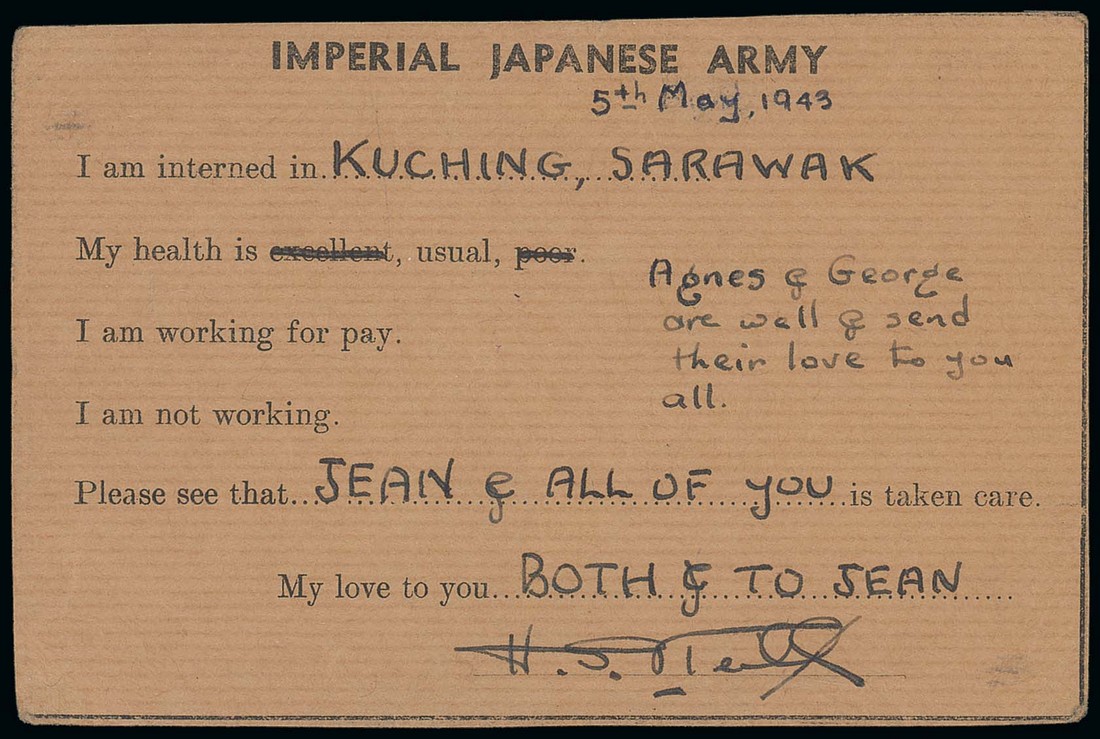 IMPERIAL JAPANESE ARMY
5th May, 1943
I am interned in KUCHING, SARAWAK
My health is excellent, usual, poor.
Agnes & George
are well & send
their love to you
all.
I am working for pay.
I am not working.
Please see that JEAN & ALL OF YOU is taken care.
My love to you BOTH & TO JEAN
H. S.